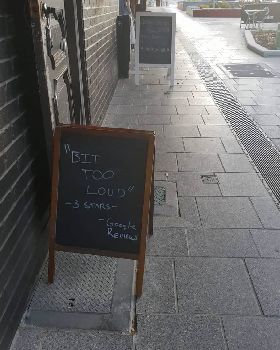 "BIT
TOO
LOUD"
- 3 STARS -
- Google
REVIEWS